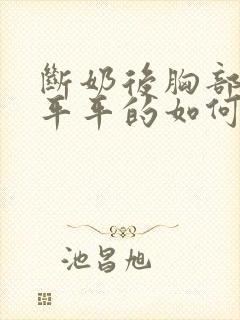 斷奶後胸部
平平的如何
池昌旭